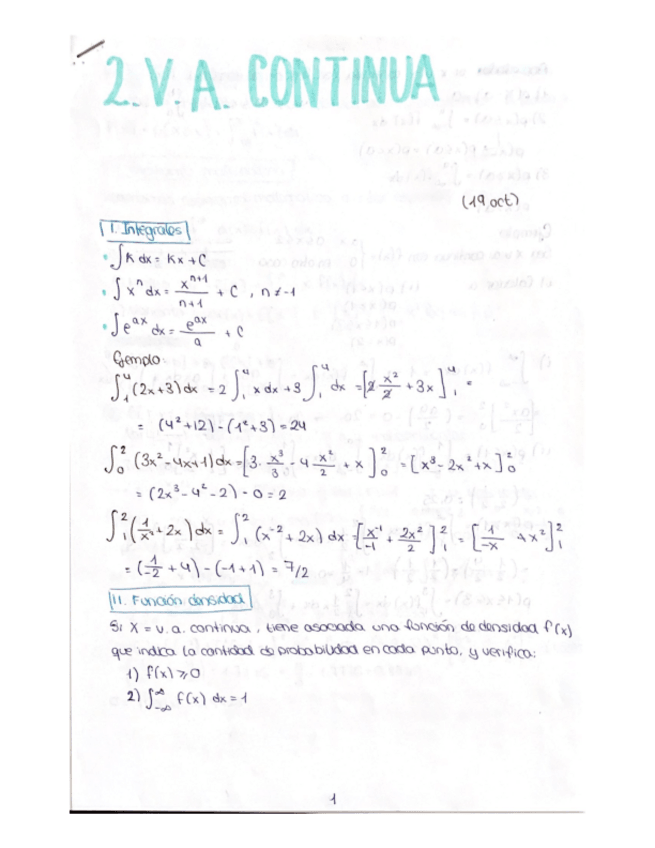 2. V. A. CONTINUA
(19 oct)
I. Integrales
• ∫ K dx = Kx + C
• ∫ x^n dx = x^(n+1)/(n+1) + C , n ≠ -1
• ∫ e^(ax) dx = e^(ax)/a + C
Ejemplo
∫_1^4 (2x+3) dx = 2 ∫_1^4 x dx + 3 ∫_1^4 dx = [2 x^2/2 + 3x]_1^4 =
= (4^2+12) - (1^2+3) = 24
∫_0^2 (3x^2 - 4x + 1) dx = [3 · x^3/3 - 4 x^2/2 + x]_0^2 = [x^3 - 2x^2 + x]_0^2
= (2x^3 - 4^2 - 2) - 0 = 2
∫_1^2 (1/x^2 + 2x) dx = ∫_1^2 (x^-2 + 2x) dx = [x^-1/-1 + 2x^2/2]_1^2 = [1/-x + x^2]_1^2
= (1/-2 + 4) - (-1 + 1) = 7/2
II. Función densidad
Si X = v.a. continua, tiene asociada una función de densidad f(x)
que indica la cantidad de probabilidad en cada punto, y verifica:
1) f(x) ≥ 0
2) ∫_-∞^∞ f(x) dx = 1
1